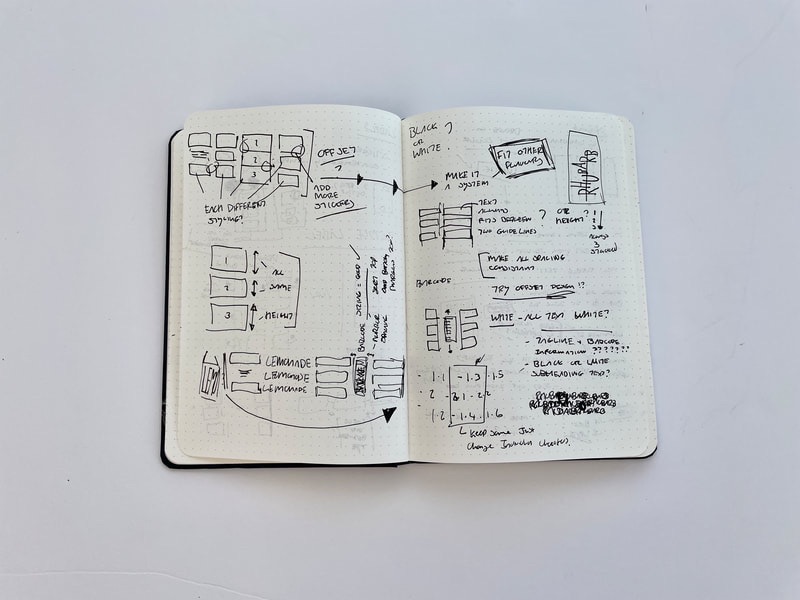 1
2
3
OFFSET
?
ADD
MORE
STICKERS
EACH DIFFERENT
STYLING?
1
2
3
ALL
SAME
HEIGHT
BARCODE SIZING = GOOD ✓
LEMONADE
LEMONADE
LEMONADE
BLACK ?
OR
WHITE.
MAKE IT
A SYSTEM
FIT OTHER
FLAVOURS
RHUBARB
TEXT
ALWAYS
FITS BETWEEN
TWO GUIDELINES
? OR
HEIGHT?
ALWAYS
3
STACKED
MAKE ALL SPACING
CONSISTANT
BARCODE
TRY OFFSET DESIGN !?
WHITE - ALL TEXT WHITE?
- TAGLINE + BARCODE
INFORMATION ??????
- BLACK OR WHITE
SUBHEADING TEXT?
- 1.1 - 1.3 - 1.5
- 2
- 1.2 - 1.4 - 1.6
KEEP SAME JUST
Change